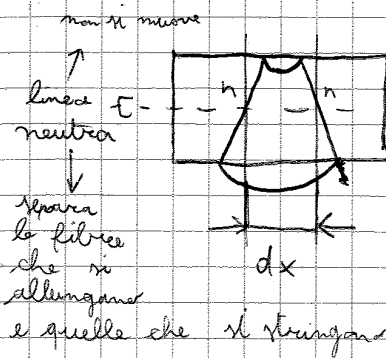 non si muove
linea
neutra
n n
separa
le fibre
che si
allungano
e quelle che si stringono
dx